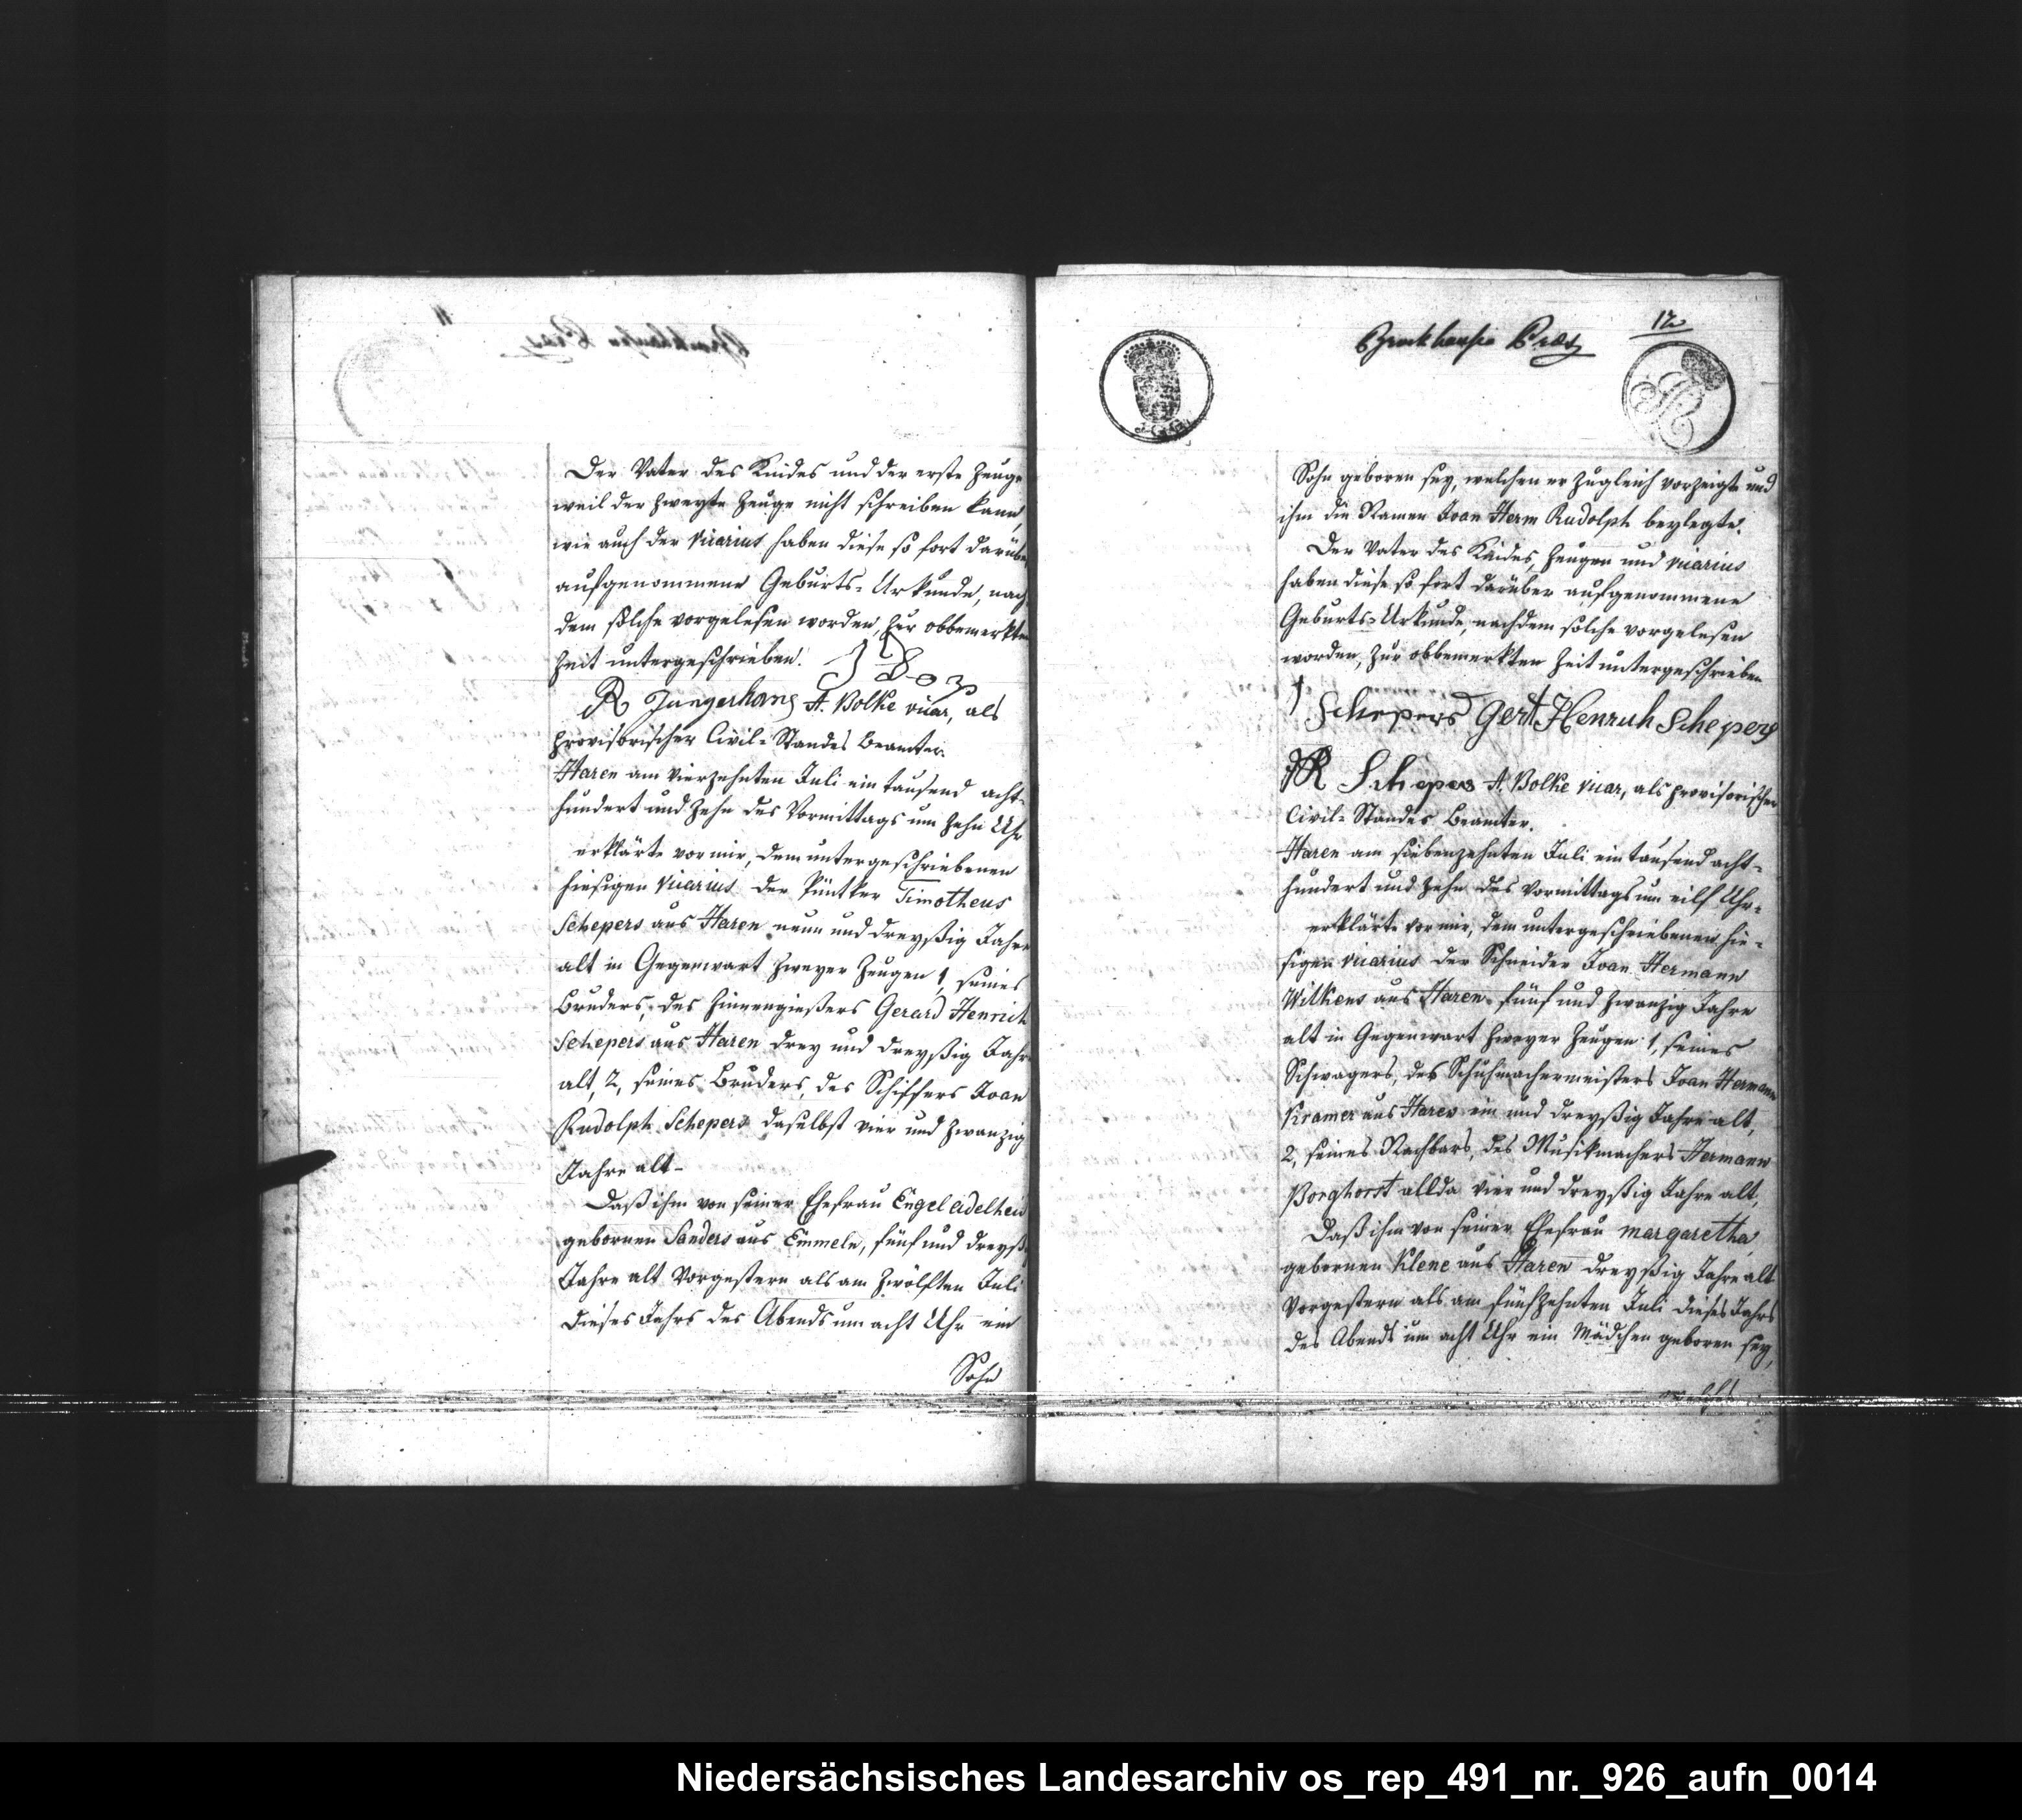 Der Vater des Kindes und der erste Zeuge
weil der zweyte Zeuge nicht schreiben kann,
wie auch der vicarius haben diese so fort darüber
aufgenommene Geburts-Urkunde, nach
dem solche vorgelesen worden, zur obbemerkten
Zeit untergeschrieben.
R Jungerhans A. Bolke vicar, als
provisorischer Civil-Standes Beamter.
Haren am vierzehnten Juli ein tausend acht-
hundert und zehn des Vormittags um zehn Uhr
erklärte vor mir, dem untergeschriebenen
hiesigen vicarius der Püntker Timotheus
Schepers aus Haren neun und dreyßig Jahre
alt in Gegenwart zweyer Zeugen 1, seines
Bruders, des Zinnengießers Gerard Henrich
Schepers aus Haren drey und dreyßig Jahr
alt, 2, seines Bruders, des Schiffers Joan
Rudolph Schepers daselbst vier und zwanzig
Jahre alt-
Daß ihm von seiner Ehefrau Engel adelheid
gebornen Sanders aus Emmeln, fünf und dreyß
Jahre alt vorgestern als am zwölften Juli
dieses Jahrs des Abends um acht Uhr ein
Sohn
12
Sohn geboren sey, welchen er zugleich vorzeigte und
ihm die Namen Joan Herm Rudolph beylegte.
Der Vater des Kindes, Zeugen und vicarius
haben diese so fort darüber aufgenommene
Geburts-Urkunde, nachdem solche vorgelesen
worden, zur obbemerkten Zeit untergeschrieben
Schepers Gert Henrich Schepers
JR Schepers A. Bolke vicar, als provisorischer
Civil-Standes Beamter.
Haren am siebenzehnten Juli ein tausend acht-
hundert und zehn des Vormittags um eilf Uhr-
erklärte vor mir, dem untergeschriebenen hie-
sigen vicarius der Schneider Joan Hermann
Wilkens aus Haren fünf und zwanzig Jahre
alt in Gegenwart zweyer Zeugen 1, seines
Schwagers, des Schuhmachermeisters Joan Hermann
Kramer aus Haren ein und dreyßig Jahre alt,
2, seines Nachbars, des Musikmachers Hermann
Borghorst allda vier und dreyßig Jahre alt,
Daß ihm von seiner Ehefrau margaretha
gebornen Klene aus Haren dreyßig Jahre alt
vorgestern als am fünfzehnten Juli dieses Jahrs
des Abends um acht Uhr ein Mädchen geboren sey,
Niedersächsisches Landesarchiv os_rep_491_nr._926_aufn_0014